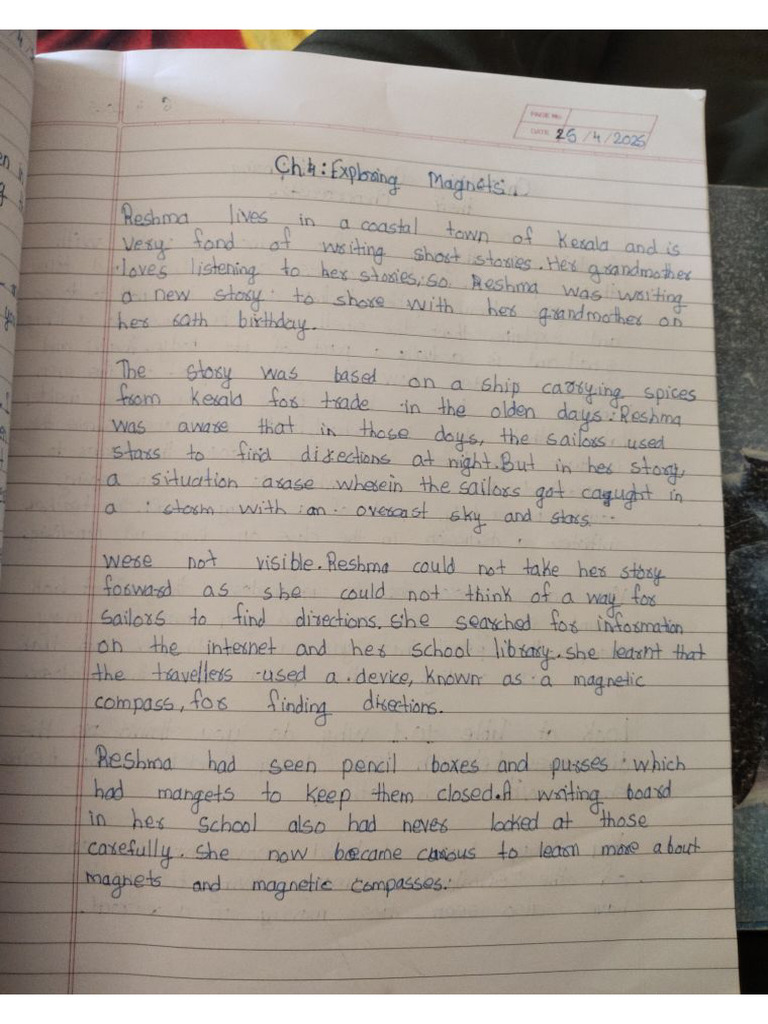 PAGE No.
DATE 25/4/2025
Ch.4: Exploring Magnets.
Reshma lives in a coastal town of Kerala and is
very fond of writing short stories. Her grandmother
loves listening to her stories, so Reshma was writing
a new story to share with her grandmother on
her 60th birthday.
The story was based on a ship carrying spices
from Kerala for trade in the olden days. Reshma
was aware that in those days, the sailors used
stars to find directions at night. But in her story,
a situation arase wherein the sailors got caught in
a storm with an overcast sky and stars
were not visible. Reshma could not take her story
forward as she could not think of a way for
sailors to find directions. She searched for information
on the internet and her school library. She learnt that
the travellers used a device, known as a magnetic
compass, for finding directions.
Reshma had seen pencil boxes and purses which
had mangets to keep them closed. A writing board
in her school also had never looked at those
carefully. She now became curious to learn more about
magnets and magnetic compasses.